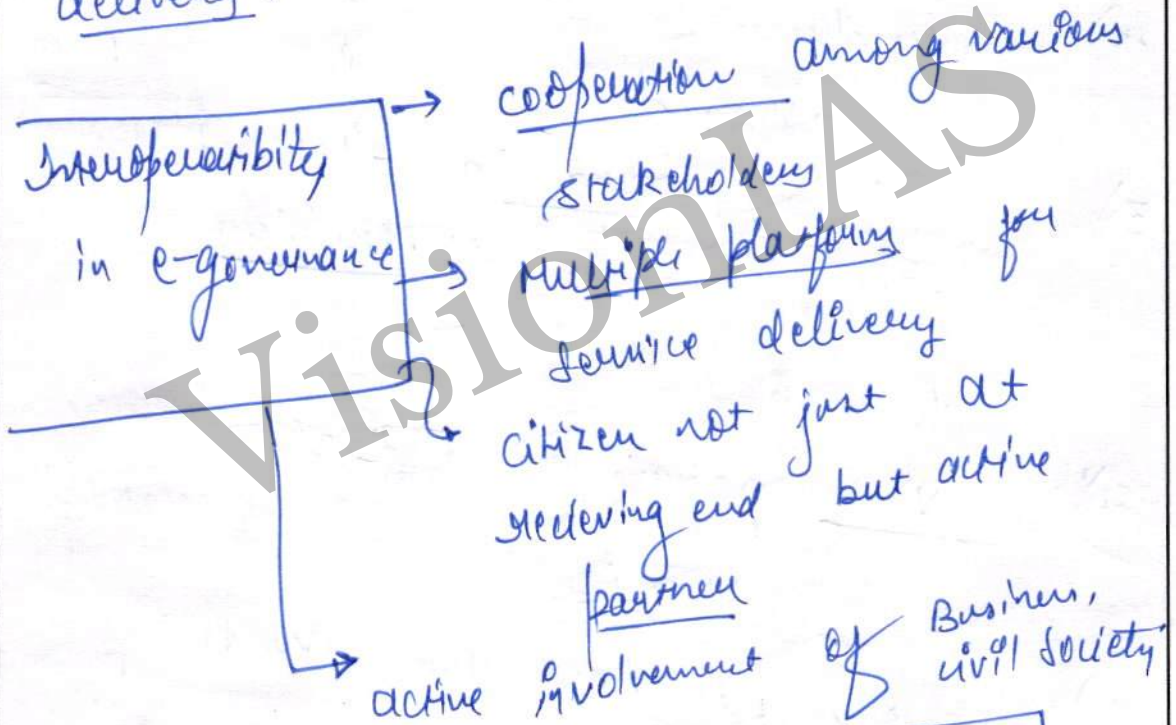 delivery
Interoperability
in e-governance
cooperation among various
stakeholders
Multiple platforms for
service delivery
Citizen not just at
recieving end but active
partner
active involvement of Business,
civil society
VisionIAS